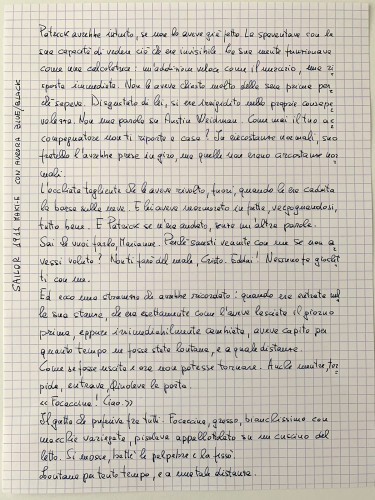 Patrick avrebbe intuito, se non lo aveva già fatto. La spaventava con la
sua capacità di vedere ciò che era invisibile. La sua mente funzionava
come una calcolatrice: un'addizione veloce come il mercurio, una ri
sposta immediata. Non le aveva chiesto molto della sera prima per
ché sapeva. Disgustato da lei, si era irrigidito nella propria consape
volezza. Non una parola su Austin Weidman. Come mai il tuo ac
compagnatore non ti riporta a casa? In circostanze normali, suo
fratello l'avrebbe presa in giro, ma quelle non erano circostanze nor
mali.
L'occhiata tagliente che le aveva rivolto, fuori, quando le era caduta
la borsa sulla neve. E lei aveva mormorato in fretta, vergognandosi,
tutto bene. E Patrick se n'era andato, senza un'altra parola.
Sai che vuoi farlo, Marianne. Perché saresti venuta con me se non a
vessi voluto? Non ti farò del male, Cristo. Eddai! Nessuno fa giochet
ti con me.
Ed ecco una stranezza che avrebbe ricordato: quando era entrata nel
la sua stanza, che era esattamente come l'aveva lasciata il giorno
prima, eppure irrimediabilmente cambiata, aveva capito per
quanto tempo ne fosse stata lontana, e a quale distanza.
Come se fosse uscita e ora non potesse tornare. Anche mentre, tor
pida, entrava, chiudeva la porta.
«Focaccina! Ciao.»
Il gatto che preferiva fra tutti. Focaccina, grosso, bianchissimo con
macchie variegate, pisolava appallottolato su un cuscino del
letto. Si mosse, batté le palpebre e la fissò.
Lontana per tanto tempo, e a una tale distanza.
SAILOR 1911 NAKIE CON AURORA BLUE/BLACK